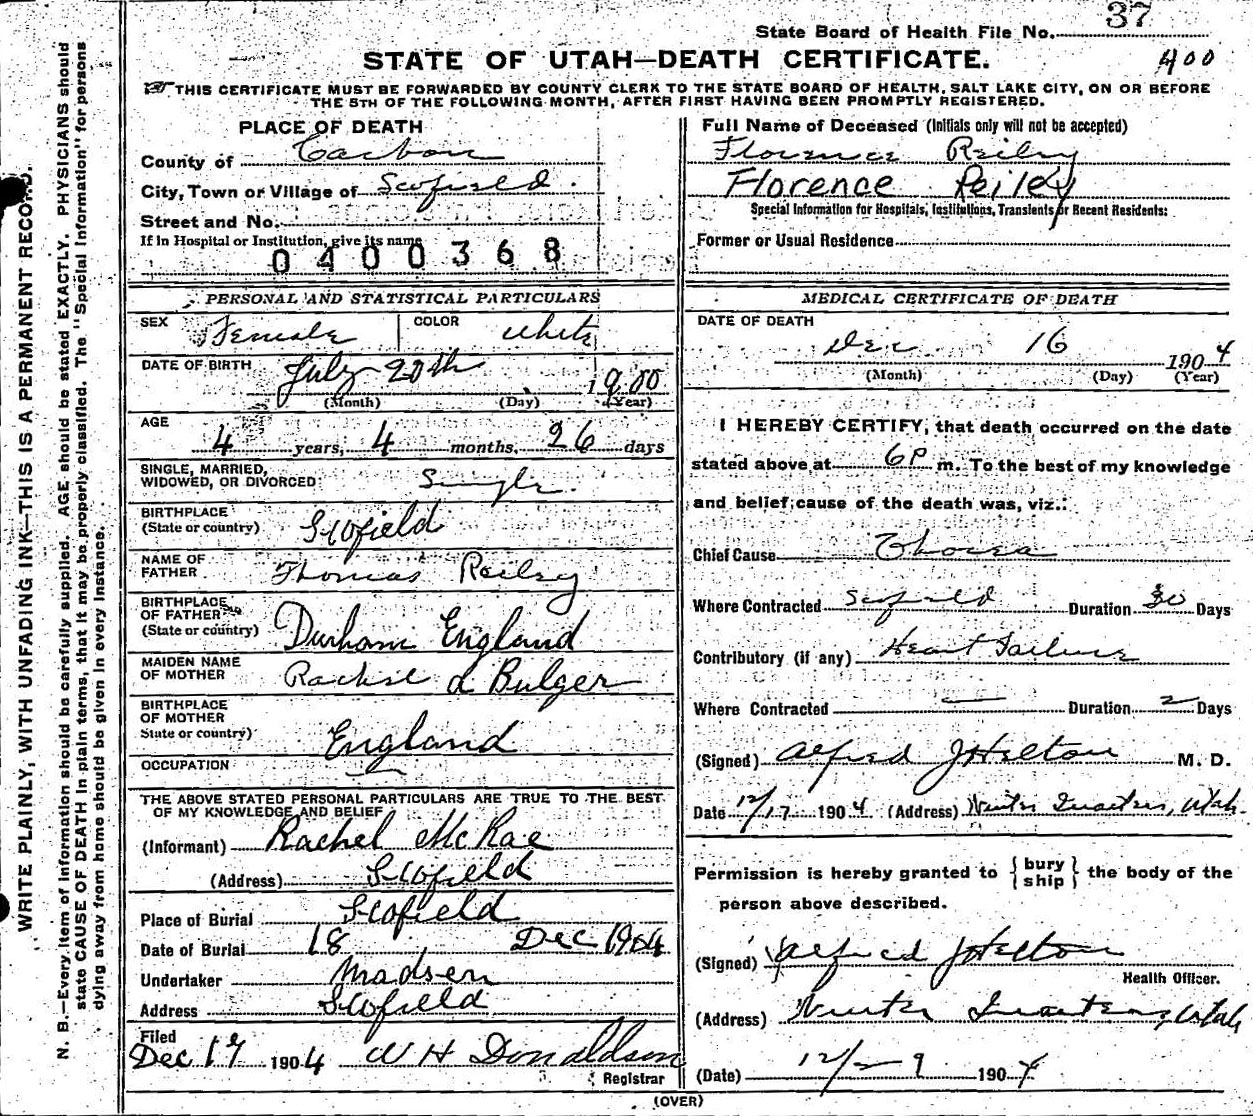 37
State Board of Health File No.
STATE OF UTAH—DEATH CERTIFICATE.
400
THIS CERTIFICATE MUST BE FORWARDED BY COUNTY CLERK TO THE STATE BOARD OF HEALTH, SALT LAKE CITY, ON OR BEFORE
THE 5TH OF THE FOLLOWING MONTH, AFTER FIRST HAVING BEEN PROMPTLY REGISTERED.
WRITE PLAINLY, WITH UNFADING INK—THIS IS A PERMANENT RECORD.
N. B.—Every item of information should be carefully supplied. AGE should be stated EXACTLY. PHYSICIANS should
state CAUSE OF DEATH in plain terms, that it may be properly classified. The "Special Information" for persons
dying away from home should be given in every instance.
PLACE OF DEATH
County of Carbon
City, Town or Village of Scofield.
Street and No.
If in Hospital or Institution, give its name
0400368
PERSONAL AND STATISTICAL PARTICULARS
SEX Female COLOR white
DATE OF BIRTH July 20th 1900
(Month) (Day) (Year)
AGE
4 years, 4 months, 26 days
SINGLE, MARRIED,
WIDOWED, OR DIVORCED Single.
BIRTHPLACE
(State or country) Scofield
NAME OF
FATHER Thomas Reiley
BIRTHPLACE
OF FATHER
(State or country) Durham England
MAIDEN NAME
OF MOTHER Rachel Bulger
BIRTHPLACE
OF MOTHER
State or country) England
OCCUPATION —
THE ABOVE STATED PERSONAL PARTICULARS ARE TRUE TO THE BEST
OF MY KNOWLEDGE AND BELIEF
(Informant) Rachel McRae
(Address) Scofield
Place of Burial Scofield
Date of Burial 18 Dec 1904
Undertaker Madsen
Address Scofield
Filed
Dec 1904 W H Donaldson
Registrar
Full Name of Deceased (Initials only will not be accepted)
Florence Reiley
Florence Reiley
Special Information for Hospitals, Institutions, Transients or Recent Residents:
Former or Usual Residence
MEDICAL CERTIFICATE OF DEATH
DATE OF DEATH
Dec 16 1904
(Month) (Day) (Year)
I HEREBY CERTIFY, that death occurred on the date
stated above at 6P m. To the best of my knowledge
and belief cause of the death was, viz.:
Chief Cause Chorea
Where Contracted Scofield Duration 30 Days
Contributory (if any) Heart Failure
Where Contracted — Duration 2 Days
(Signed) Alfred J Helton M. D.
Date 12/17 1904 (Address) Winter Quarters, Utah.
Permission is hereby granted to { bury
ship } the body of the
person above described.
(Signed) Alfred J Helton
Health Officer.
(Address) Winter Quarters, Utah
(Date) 12/ 1904
(OVER)